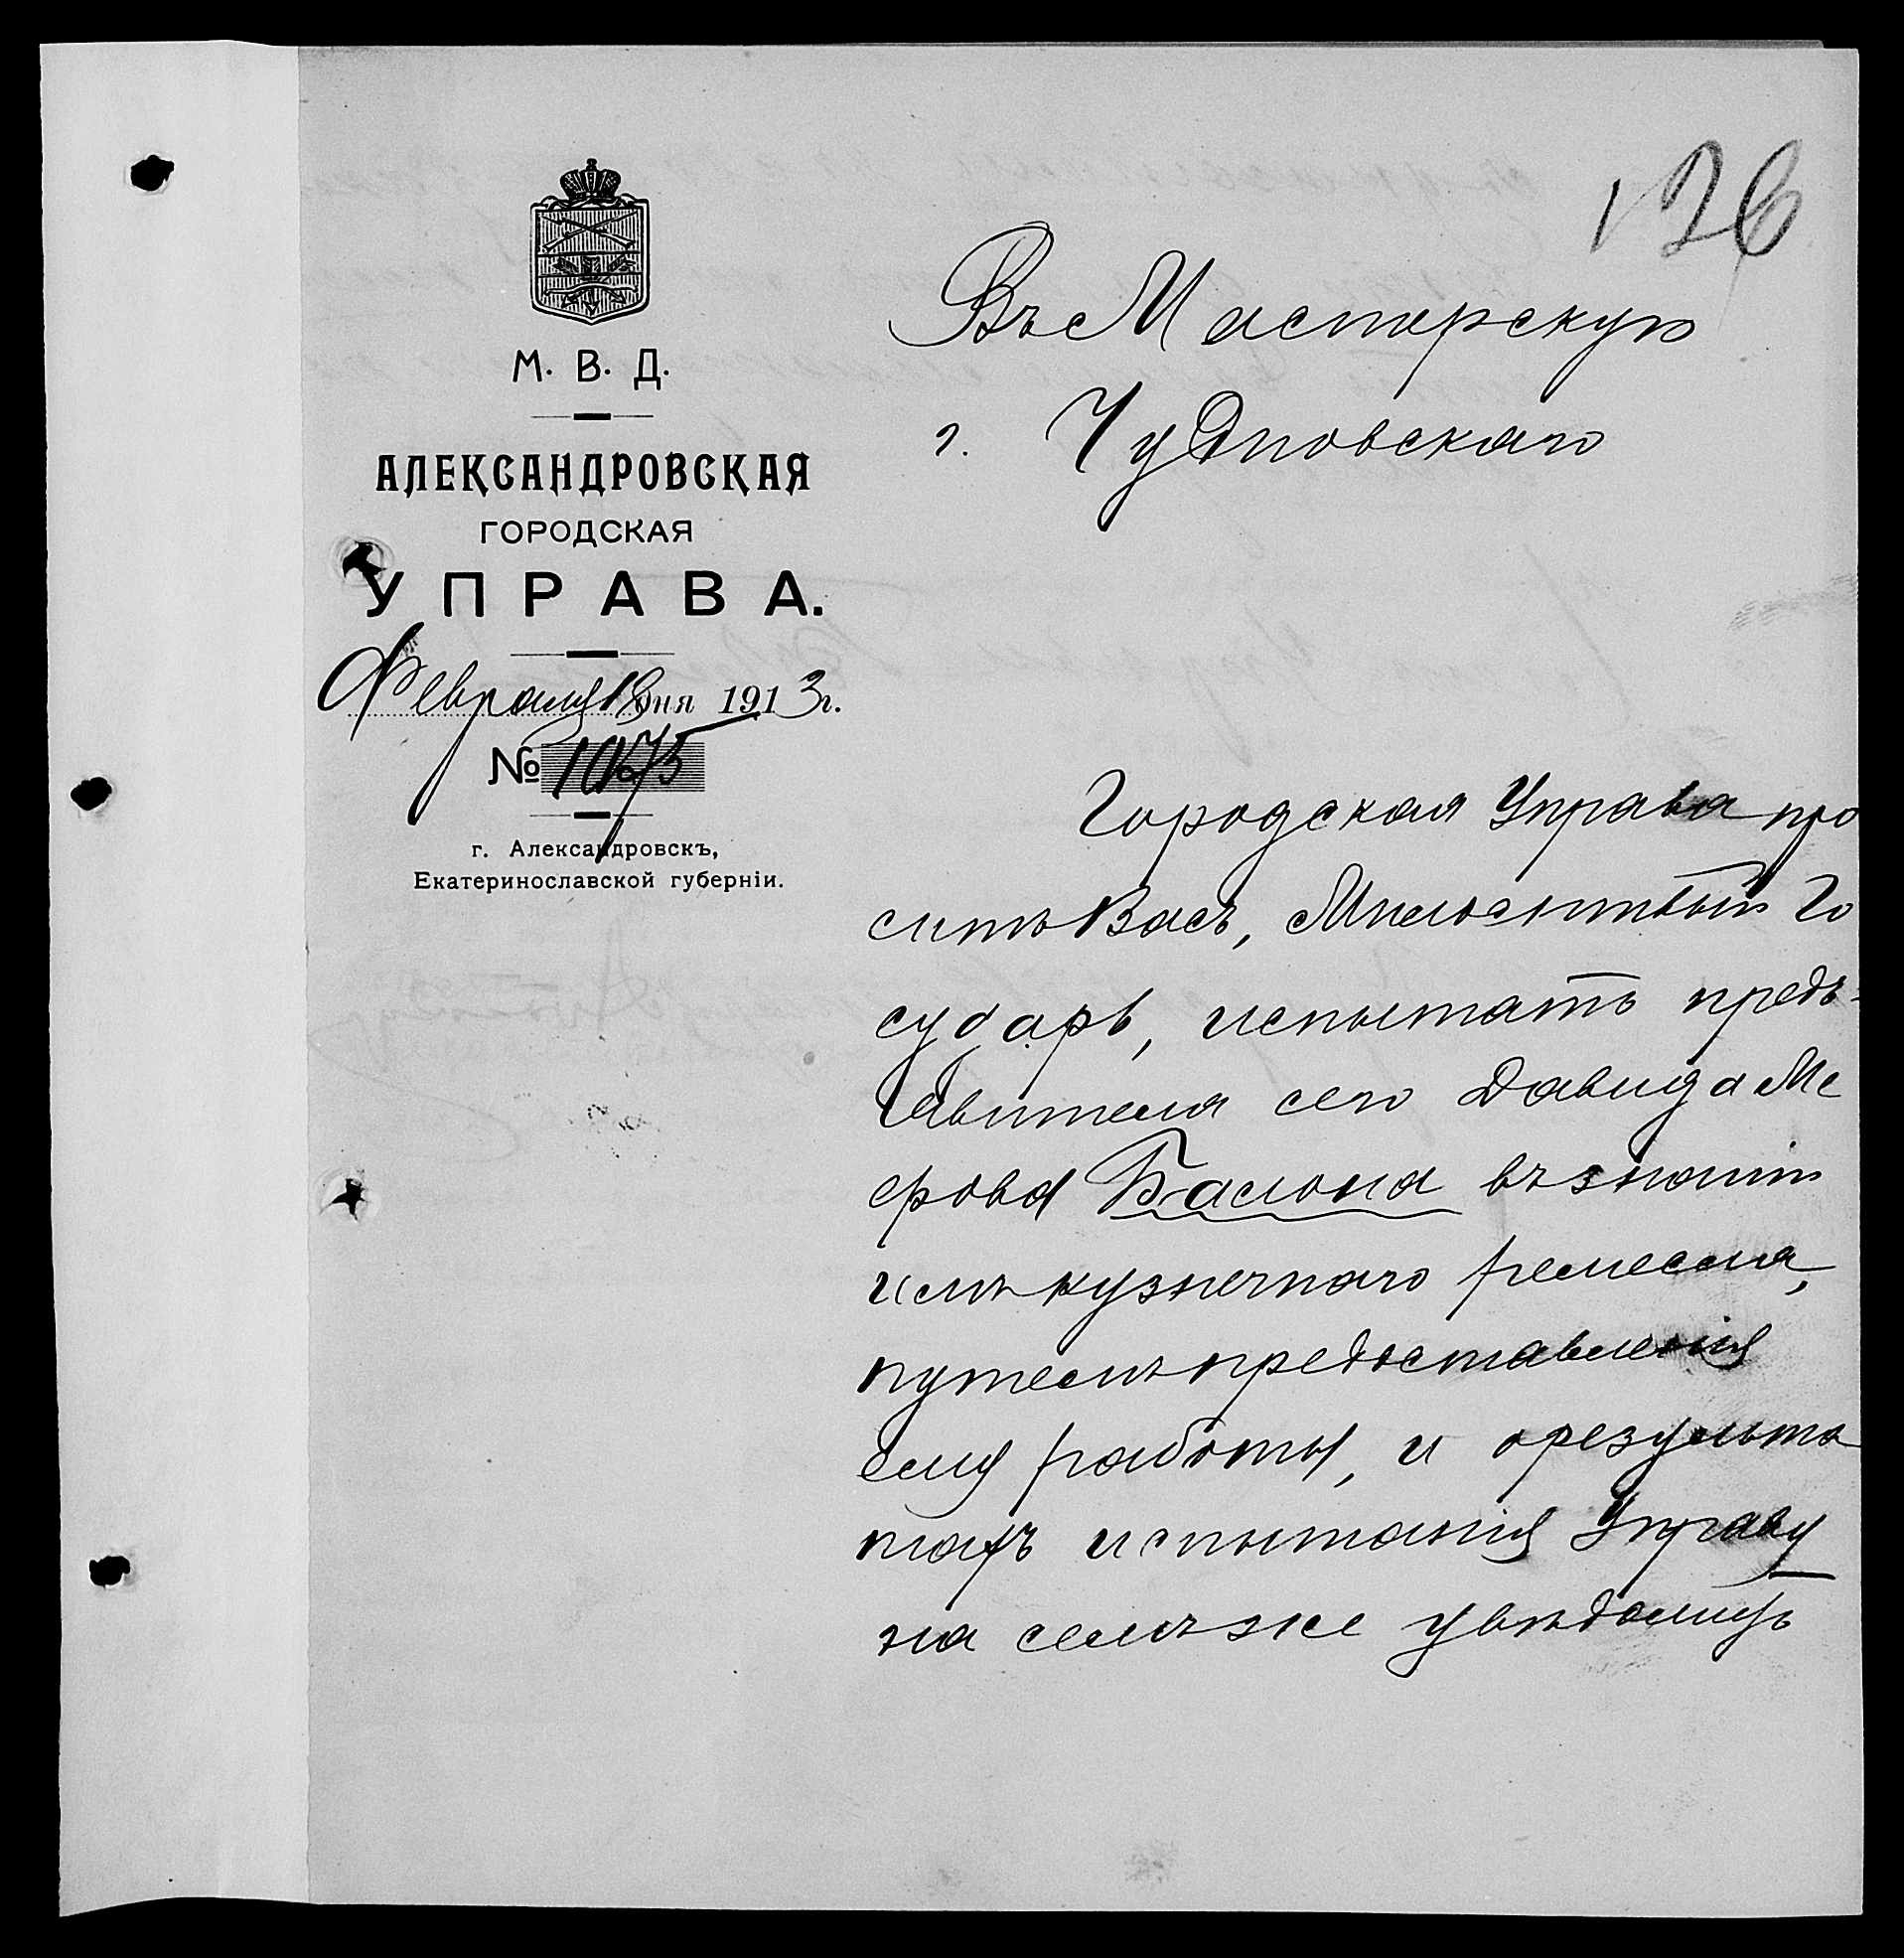 126
М. В. Д.
АЛЕКСАНДРОВСКАЯ
ГОРОДСКАЯ
УПРАВА.
Февраля 18 дня 1913 г.
№ 1075
г. Александровскъ,
Екатеринославской губерніи.
Въ Мастерскую
г. Чудновскаго
Городская Управа про
ситъ Васъ, Милостивый Го
сударь, испытать предъ-
явителя сего Давида Ме
ерова Балона въ знаніи
имъ кузнечнаго ремесла,
путемъ предоставленія
ему работы, и о результа
тахъ испытанія Управу
на семъ же увѣдомить